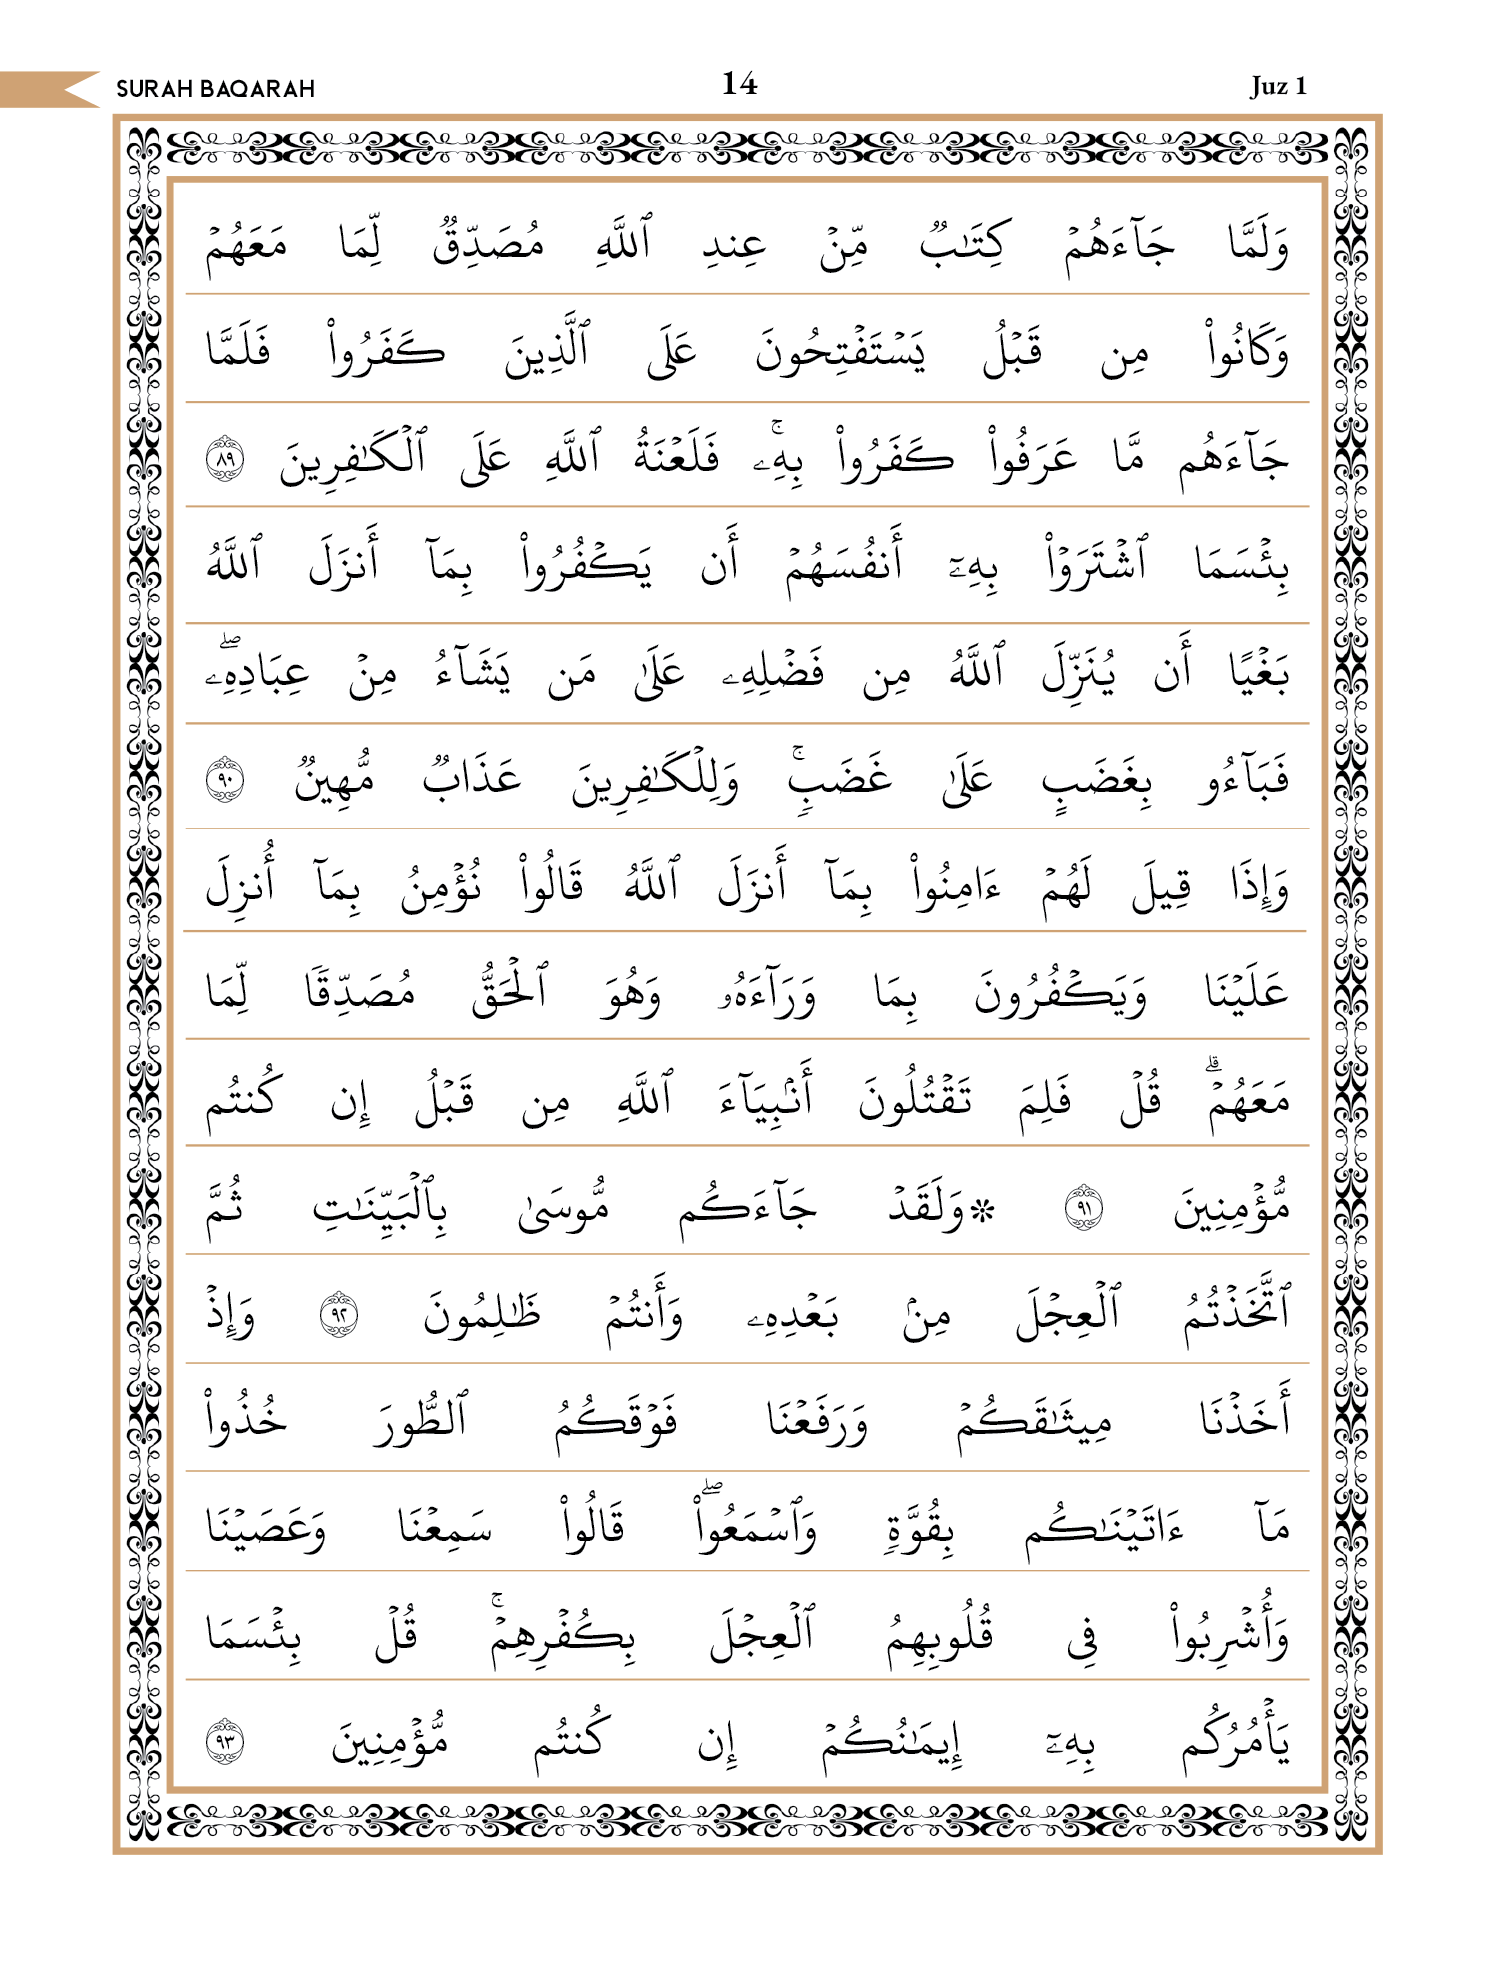 SURAH BAQARAH 14 Juz 1
وَلَمَّا جَآءَهُمۡ كِتَٰبٞ مِّنۡ عِندِ ٱللَّهِ مُصَدِّقٞ لِّمَا مَعَهُمۡ
وَكَانُواْ مِن قَبۡلُ يَسۡتَفۡتِحُونَ عَلَى ٱلَّذِينَ كَفَرُواْ فَلَمَّا
جَآءَهُم مَّا عَرَفُواْ كَفَرُواْ بِهِۦۚ فَلَعۡنَةُ ٱللَّهِ عَلَى ٱلۡكَٰفِرِينَ ٨٩
بِئۡسَمَا ٱشۡتَرَوۡاْ بِهِۦٓ أَنفُسَهُمۡ أَن يَكۡفُرُواْ بِمَآ أَنزَلَ ٱللَّهُ
بَغۡيًا أَن يُنَزِّلَ ٱللَّهُ مِن فَضۡلِهِۦ عَلَىٰ مَن يَشَآءُ مِنۡ عِبَادِهِۦۖ
فَبَآءُو بِغَضَبٍ عَلَىٰ غَضَبٖۚ وَلِلۡكَٰفِرِينَ عَذَابٞ مُّهِينٞ ٩٠
وَإِذَا قِيلَ لَهُمۡ ءَامِنُواْ بِمَآ أَنزَلَ ٱللَّهُ قَالُواْ نُؤۡمِنُ بِمَآ أُنزِلَ
عَلَيۡنَا وَيَكۡفُرُونَ بِمَا وَرَآءَهُۥ وَهُوَ ٱلۡحَقُّ مُصَدِّقٗا لِّمَا
مَعَهُمۡۗ قُلۡ فَلِمَ تَقۡتُلُونَ أَنۢبِيَآءَ ٱللَّهِ مِن قَبۡلُ إِن كُنتُم
مُّؤۡمِنِينَ ٩١ ۞وَلَقَدۡ جَآءَكُم مُّوسَىٰ بِٱلۡبَيِّنَٰتِ ثُمَّ
ٱتَّخَذۡتُمُ ٱلۡعِجۡلَ مِنۢ بَعۡدِهِۦ وَأَنتُمۡ ظَٰلِمُونَ ٩٢ وَإِذۡ
أَخَذۡنَا مِيثَٰقَكُمۡ وَرَفَعۡنَا فَوۡقَكُمُ ٱلطُّورَ خُذُواْ
مَآ ءَاتَيۡنَٰكُم بِقُوَّةٖ وَٱسۡمَعُواْۖ قَالُواْ سَمِعۡنَا وَعَصَيۡنَا
وَأُشۡرِبُواْ فِي قُلُوبِهِمُ ٱلۡعِجۡلَ بِكُفۡرِهِمۡۚ قُلۡ بِئۡسَمَا
يَأۡمُرُكُم بِهِۦٓ إِيمَٰنُكُمۡ إِن كُنتُم مُّؤۡمِنِينَ ٩٣